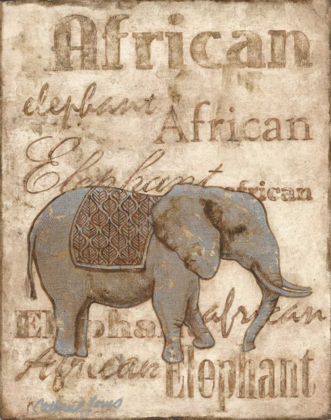 African
elephant
African
Elephant
african
Elephant
african
African
Elephant